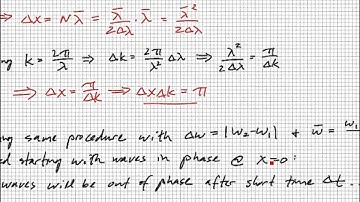 ⇒ Δx = Nλ̄ = λ̄/2Δλ · λ̄ = λ̄²/2Δλ
k = 2π/λ ⇒ Δk = 2π/λ² Δλ ⇒ λ²/2Δλ = π/Δk
⇒ Δx = π/Δk ⇒ ΔxΔk = π
same procedure with Δw = |w₂-w₁| + w̄ =
starting with waves in phase @ x=0:
waves will be out of phase after short time Δt...